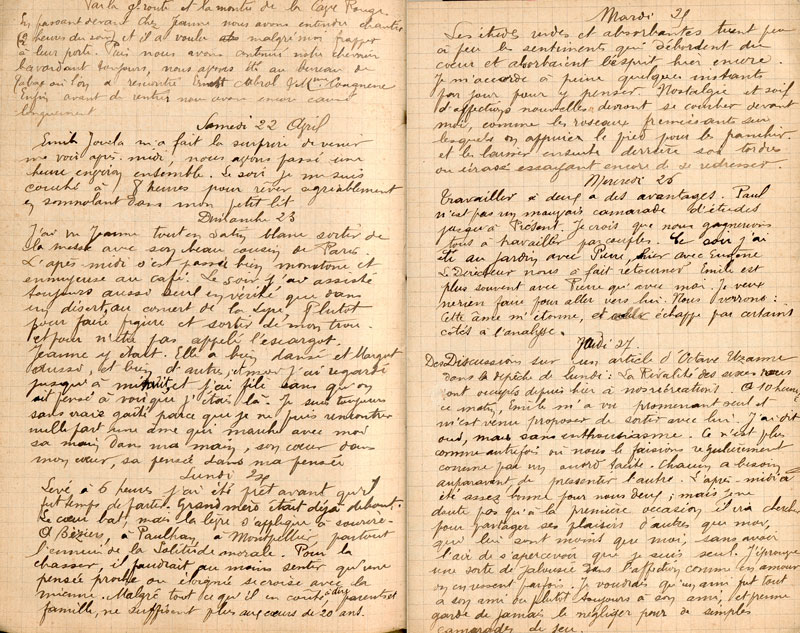 par la g. route et la montée de la Cape Rouge.
En passant devant chez Jeanne nous avons entendu chanter
(2 heures du soir) et il a voulu malgré moi frapper
à leur porte. Puis nous avons continué notre chemin
bavardant toujours, nous avons été au bureau de
tabac où l'on a rencontré Ernest Cabrol
Enfin avant de rentrer nous avons encore causé
longuement
Samedi 22 April
Emile Jovela m'a fait la surprise de venir
me voir après-midi, nous avons passé une
heure environ ensemble. Le soir je me suis
couché à 8 heures pour rêver agréablement
en somnolant dans mon petit lit
Dimanche 23
J'ai vu Jeanne tout en satin blanc sortir de
la messe avec son beau cousin de Paris.
L'après midi s'est passée bien monotone et
ennuyeuse au café. Le soir j'ai assisté
toujours aussi seul en vérité que dans
un désert, au concert de la Lyre. Plutôt
pour faire figure et sortir de mon trou.
et pour n'être pas appelé l'escargot.
Jeanne y était. Elle a bien dansé et Margot
aussi, et bien d'autres, et moi j'ai regardé
jusqu'à minuit et j'ai filé sans qu'on
ait pensé à voir que j'étais là. Je suis toujours
sans vraie gaité parce que je ne puis rencontrer
nulle part une âme qui marche avec moi
sa main dans ma main, son cœur dans
mon cœur, sa pensée dans ma pensée
Lundi 24
Levé à 6 heures j'ai été prêt avant qu'il
fut temps de partir. Grand mère était déjà debout.
Le cœur bat, mais la lèvre s'applique à sourire.
A Béziers, à Paulhan, à Montpellier, partout
l'ennui de la solitude morale. Pour la
chasser, il faudrait au moins sentir qu'une
pensée proche ou éloignée se croise avec la
mienne. Malgré tout ce qu'il en coûte à dire, parents et
famille, ne suffisent plus aux cœurs de 20 ans.
Mardi 25
Les études rudes et absorbantes tuent peu
à peu les sentiments qui débordent du
cœur et absorbaient l'esprit hier encore.
Je m'accorde à peine quelques instants
par jour pour y penser. Nostalgie et soif
d'affections nouvelles devront se courber devant
moi, comme les roseaux frémissants sur
lesquels on appuie le pied pour les pencher
et les laisser ensuite derrière soi tordus
ou écrasés essayant encore de se redresser.
Mercredi 26
Travailler à deux a des avantages. Paul
n'est pas un mauvais camarade d'études
jusqu'à présent. Je crois que nous gagnerons
tous à travailler par couples. Ce soir j'ai
été au jardin avec Pierre, hier avec Eugène
Le Directeur nous a fait retourner. Emile est
plus souvent avec Pierre qu'avec moi. Je veux
ne rien faire pour aller vers lui. Nous verrons:
Cette âme m'étonne, et échappe par certains
côtés à l'analyse.
Jeudi 27.
Discussions sur un article d'Octave Uzanne
dans la dépêche de lundi: La Rivalité des sexes nous
ont occupés depuis hier à nos récréations. A 10 heures
ce matin, Emile m'a vu promenant seul et
m'est venu proposer de sortir avec lui. J'ai dit
oui, mais sans enthousiasme. Ce n'est plus
comme autrefois où nous le faisions régulièrement
comme par un accord tacite. Chacun a besoin
auparavant de pressentir l'autre. L'après-midi a
été assez bonne pour nous deux; mais je ne
doute pas qu'à la première occasion il ira chercher
pour partager ses plaisirs d'autres que moi,
qui lui sont moins que moi, sans avoir
l'air de s'apercevoir que je suis seul. J'éprouve
une sorte de jalousie dans l'affection comme en amour
on en ressent parfois. Je voudrais qu'un ami fut tout
à son ami ou plutôt toujours à son ami, et prenne
garde de jamais le négliger pour de simples
camarades de jeu.